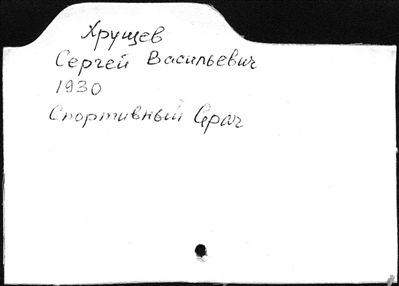 Хрущев
Сергей Васильевич
1930
Спортивный врач